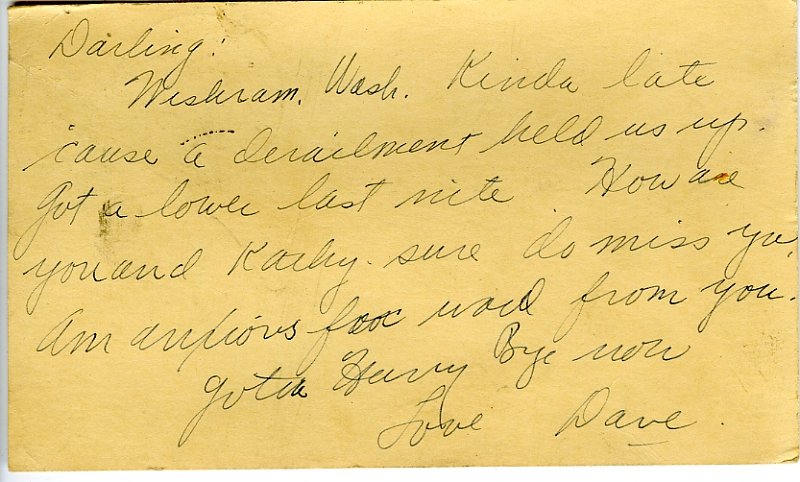 Darling:
Wishram, Wash. Kinda late
'cause a derailment held us up.
Got a lower last nite How are
you and Kathy. sure do miss ya,
Am anxious for word from you.
gotta Hurry Bye now
Love Dave.